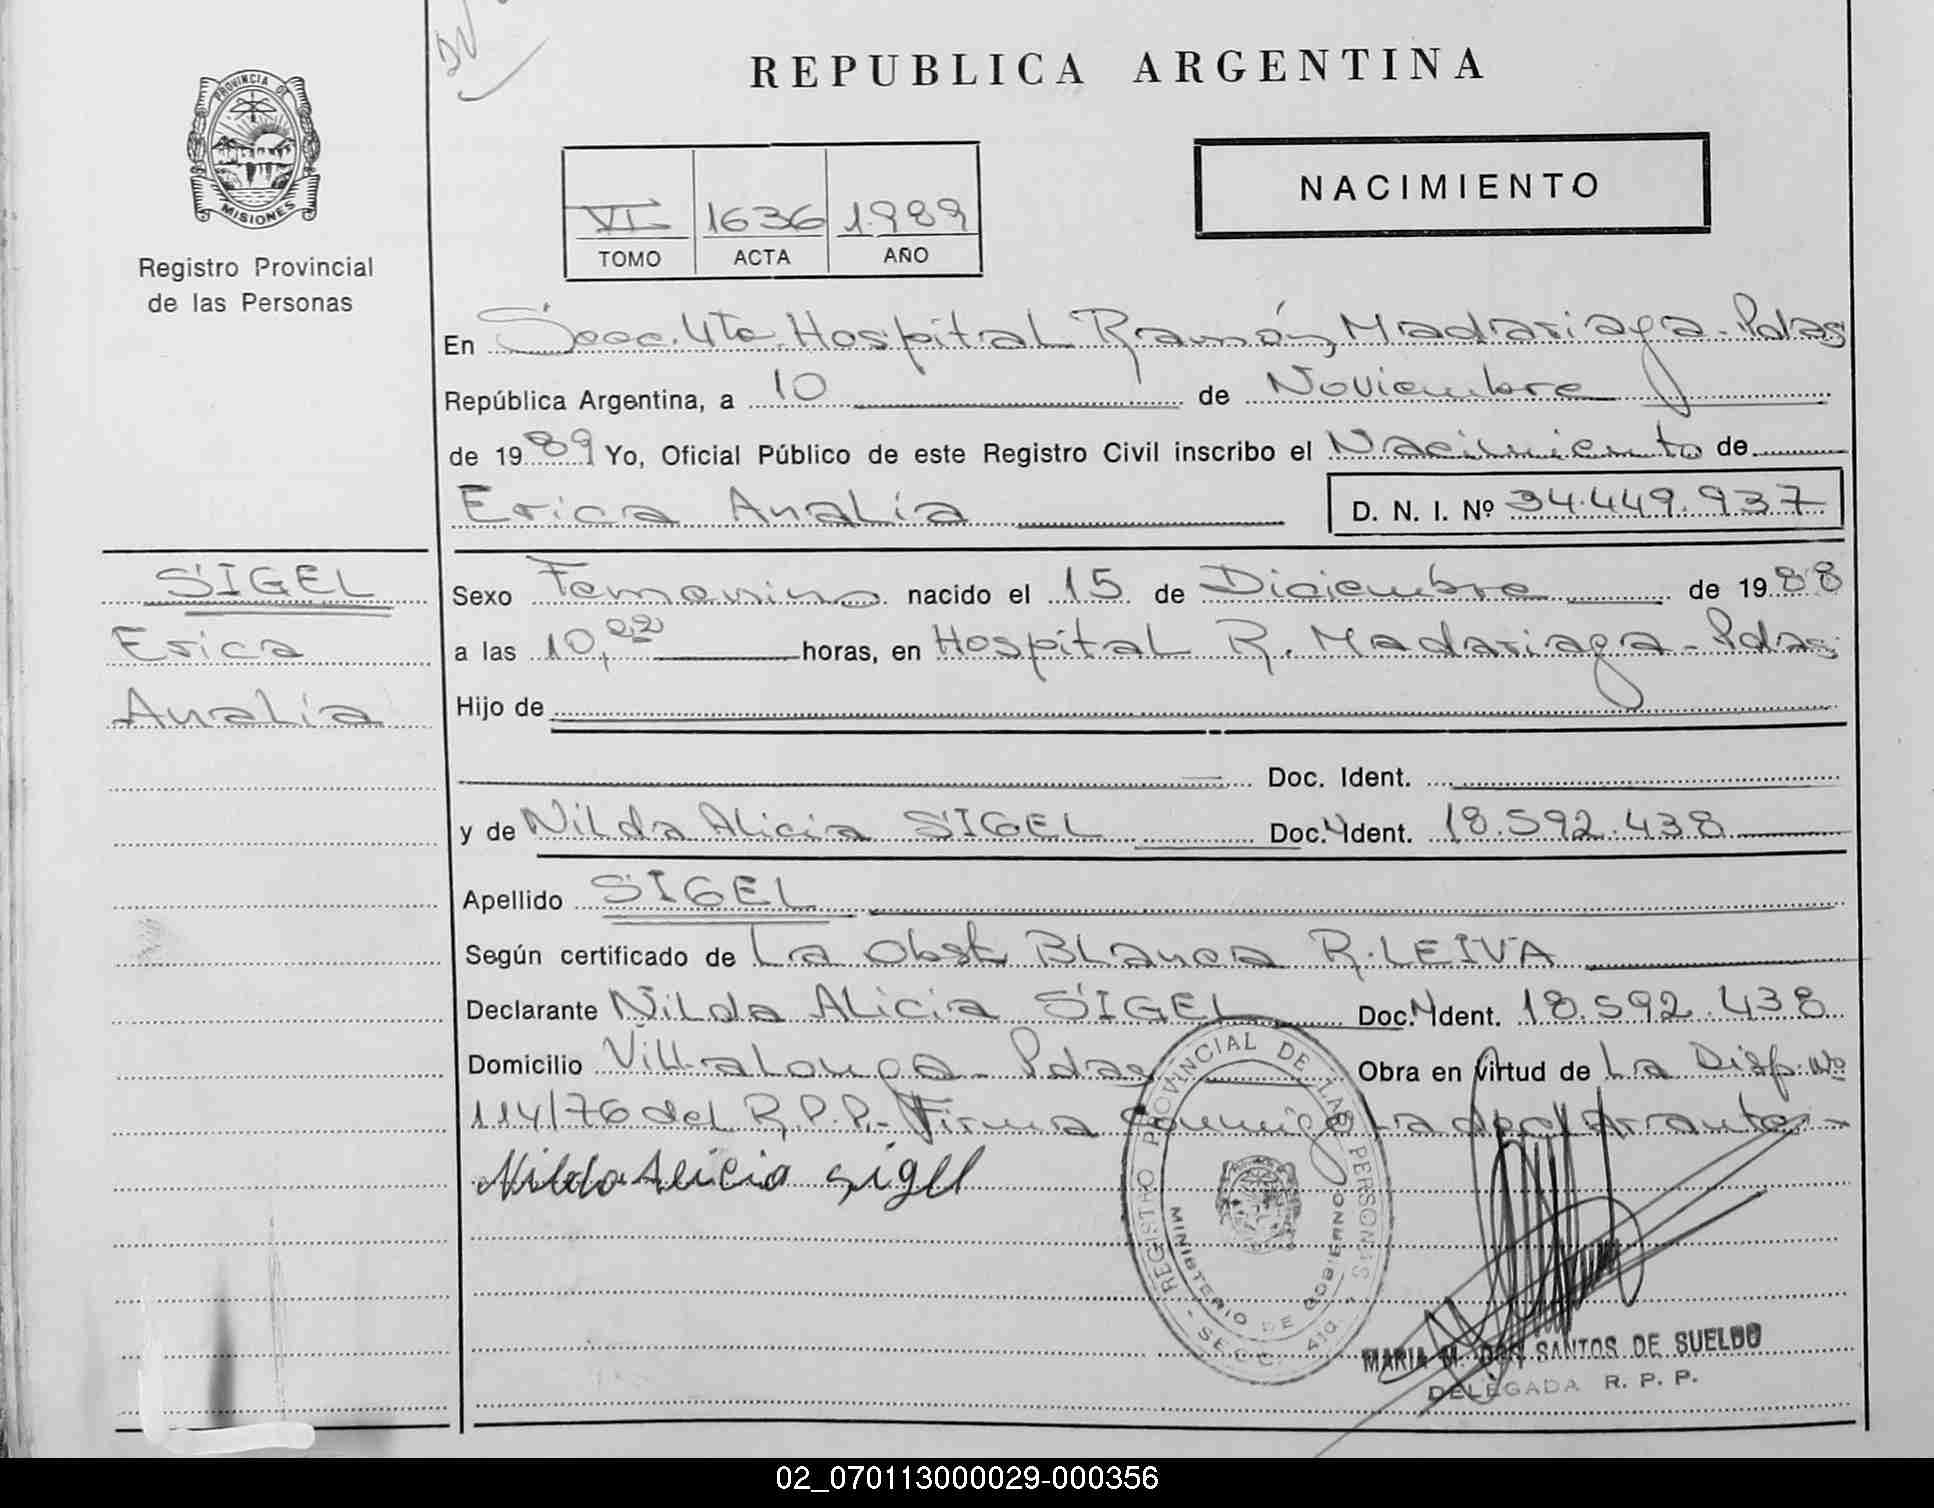 REPUBLICA ARGENTINA
PROVINCIA DE MISIONES
Registro Provincial
de las Personas
VI 1636 1989
TOMO ACTA AÑO
NACIMIENTO
En Secc. 4ta. Hospital Ramón Madariaga - Pdas
República Argentina, a 10 de Noviembre
de 1989 Yo, Oficial Público de este Registro Civil inscribo el Nacimiento de
Erica Analía D. N. I. Nº 34.449.937
SIGEL
Erica
Analía
Sexo Femenino nacido el 15 de Diciembre de 1988
a las 10,22 horas, en Hospital R. Madariaga - Pdas.
Hijo de
Doc. Ident.
y de Nilda Alicia SIGEL Doc. Ident. 18.592.438
Apellido SIGEL
Según certificado de La Obst. Blanca R. LEIVA
Declarante Nilda Alicia SIGEL Doc. Ident. 18.592.438
Domicilio Villalonga - Pdas Obra en virtud de La Disp. Nº
114/76 del R.P.P.- Firma conmigo La declarante.-
Nilda Alicia Sigel
REGISTRO PROVINCIAL DE LAS PERSONAS
MINISTERIO DE GOBIERNO
- SECC. 4ta. -
MARIA M. DOS SANTOS DE SUELDO
DELEGADA R. P. P.
02_070113000029-000356